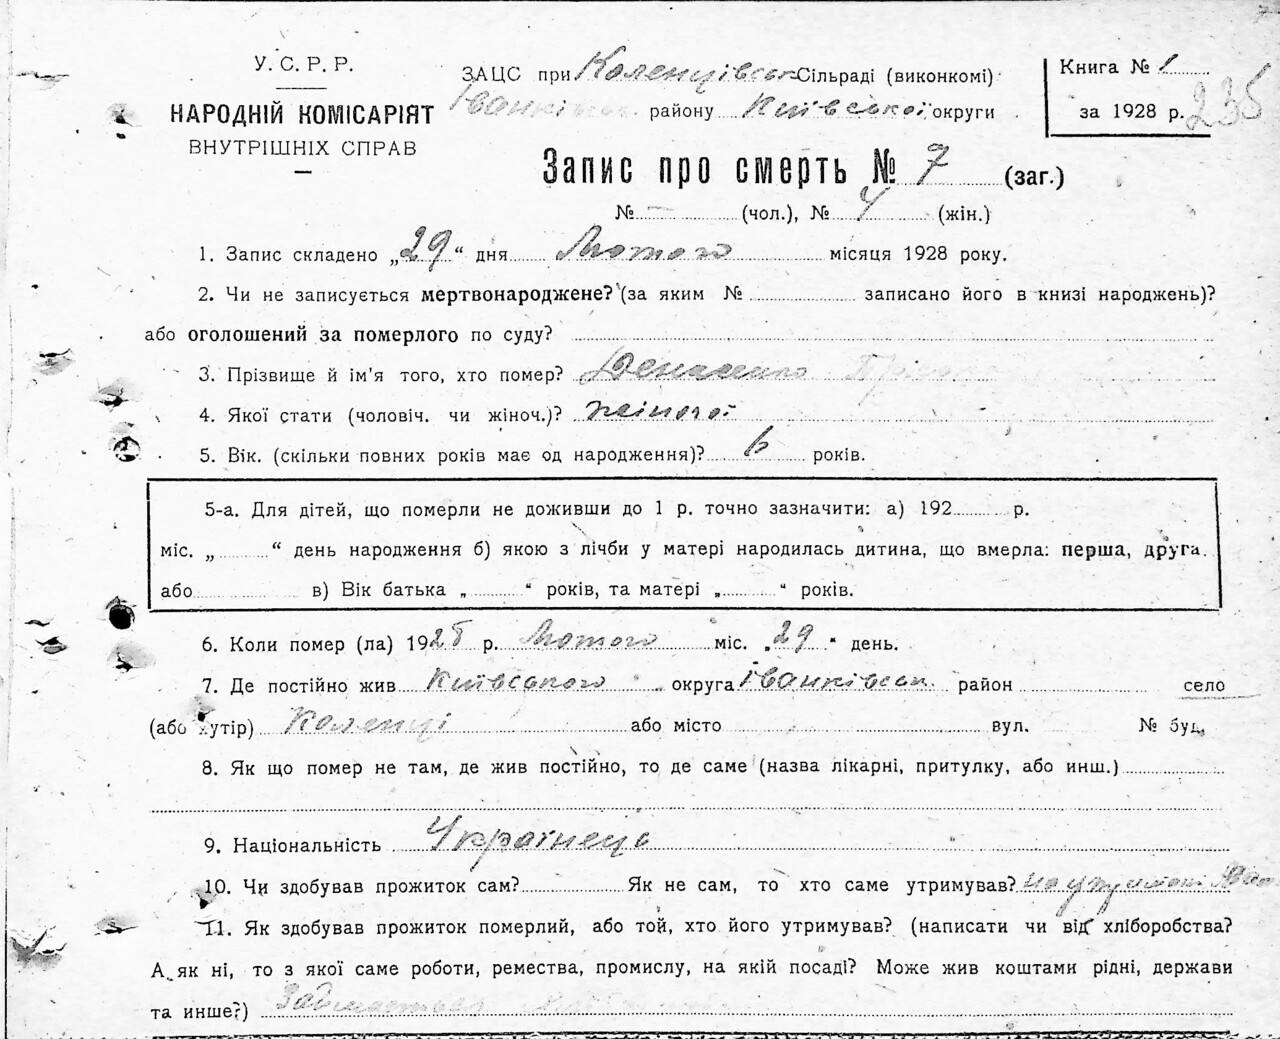 У. С. Р. Р.
НАРОДНІЙ КОМІСАРІЯТ
ВНУТРІШНІХ СПРАВ
ЗАЦС при Коленцівськ Сільраді (виконкомі)
Іванківськ району Київської округи
Книга № 1
за 1928 р.
236
Запис про смерть № 7 (заг.)
№ — (чол.), № 4 (жін.)
1. Запис складено „29“ дня Лютого місяця 1928 року.
2. Чи не записується мертвонароджене? (за яким № записано його в книзі народжень)?
або оголошений за померлого по суду?
3. Прізвище й ім'я того, хто помер?
4. Якої стати (чоловіч. чи жіноч.)? жіночої
5. Вік. (скільки повних років має од народження)? 6 років.
5-а. Для дітей, що померли не доживши до 1 р. точно зазначити: а) 192 р.
міс. „ “ день народження б) якою з лічби у матері народилась дитина, що вмерла: перша, друга.
або в) Вік батька „ “ років, та матері „ “ років.
6. Коли помер (ла) 1928 р. Лютого міс. „29“ день.
7. Де постійно жив Київського округа Іванківськ район село
(або хутір) Коленці або місто вул. № буд.
8. Як що помер не там, де жив постійно, то де саме (назва лікарні, притулку, або инш.)
9. Національність Українець
10. Чи здобував прожиток сам? Як не сам, то хто саме утримував? на утриманні
11. Як здобував прожиток померлий, або той, хто його утримував? (написати чи від хліборобства?
А як ні, то з якої саме роботи, ремества, промислу, на якій посаді? Може жив коштами рідні, держави
та инше?)